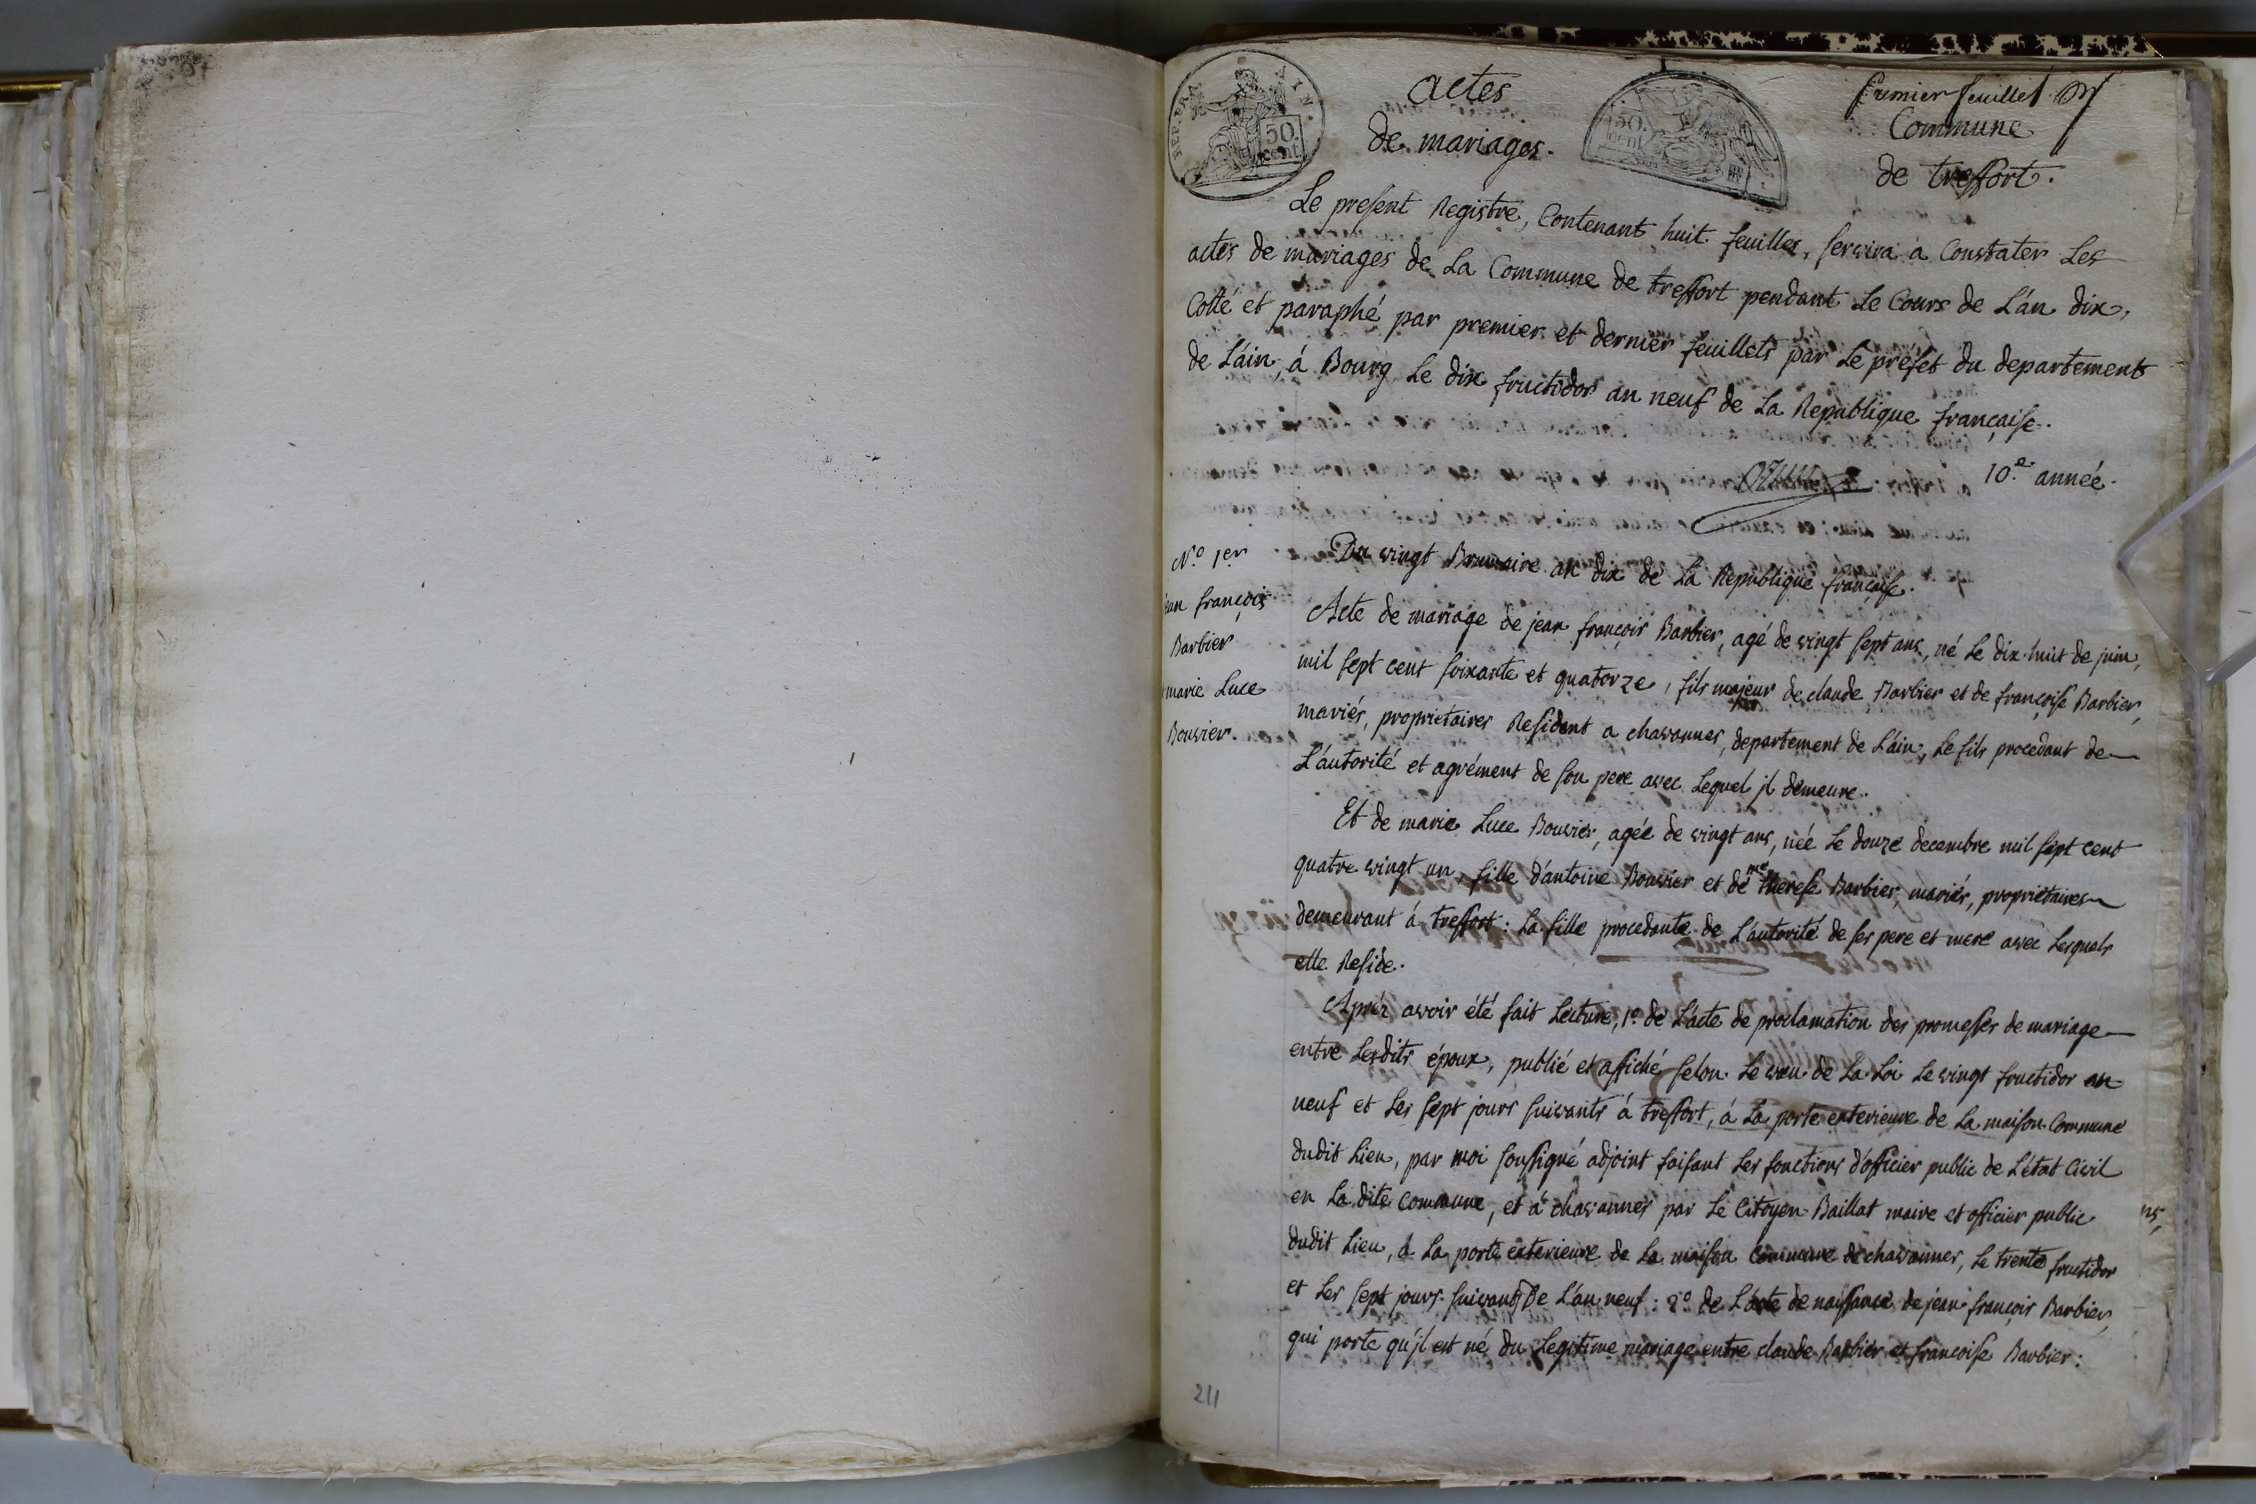 actes
de mariages.
REP. FRA
AIN.
50.
cent.
50.
cent
premier feuillet
Commune
de treffort.
Le present Registre, Contenant huit feuilles, servira a Constater Les
actes de mariages de La Commune de treffort pendant Le Cours de L'an dix,
Cotté et paraphé par premier et dernier feuillets par Le prefet du departement
de L'ain, á Bourg Le dix fructidor an neuf de La Republique française.
10.e année.
N.o 1er
ean françois
Barbier
marie Luce
Bouvier.
Du vingt Brumaire an dix de La Republique française.
Acte de mariage de jean françois Barbier, agé de vingt sept ans, né Le dix huit de juin,
mil sept cent soixante et quatorze, fils majeur de claude Barbier et de françoise Barbier,
mariés, proprietaires Resident a chavannes, departement de L'ain, Le fils procedant de
L'autorité et agrément de son pere avec Lequel jl demeure.
Et de marie Luce Bouvier, agée de vingt ans, née Le douze decembre mil sept cent
quatre vingt un, fille d'antoine Bouvier et de me therese Barbier, mariés, proprietaires
demeurant á treffort: La fille procedante de L'autorité de ses pere et mere avec Lesquels
elle Reside.
Aprés avoir été fait Lecture, 1.o de L'acte de proclamation des promesses de mariage
entre Lesdits époux, publié et affiché selon Le vœu de La Loi Le vingt fructidor an
neuf et Les sept jours suivants á treffort, á La porte exterieure de La maison Commune
dudit Lieu, par moi soussigné adjoint faisant Les fonctions d'officier public de L'état Civil
en La dite Commune, et á chavannes par Le Citoyen Baillat maire et officier public
dudit Lieu, á La porte exterieure de La maison Commune de chavannes, Le trente fructidor
et Les sept jours suivants de L'an neuf: 2.o de L'acte de naissance de jean françois Barbier,
qui porte qu'jl est né du Legitime mariage entre claude Barbier et françoise Barbier:
ns,
211